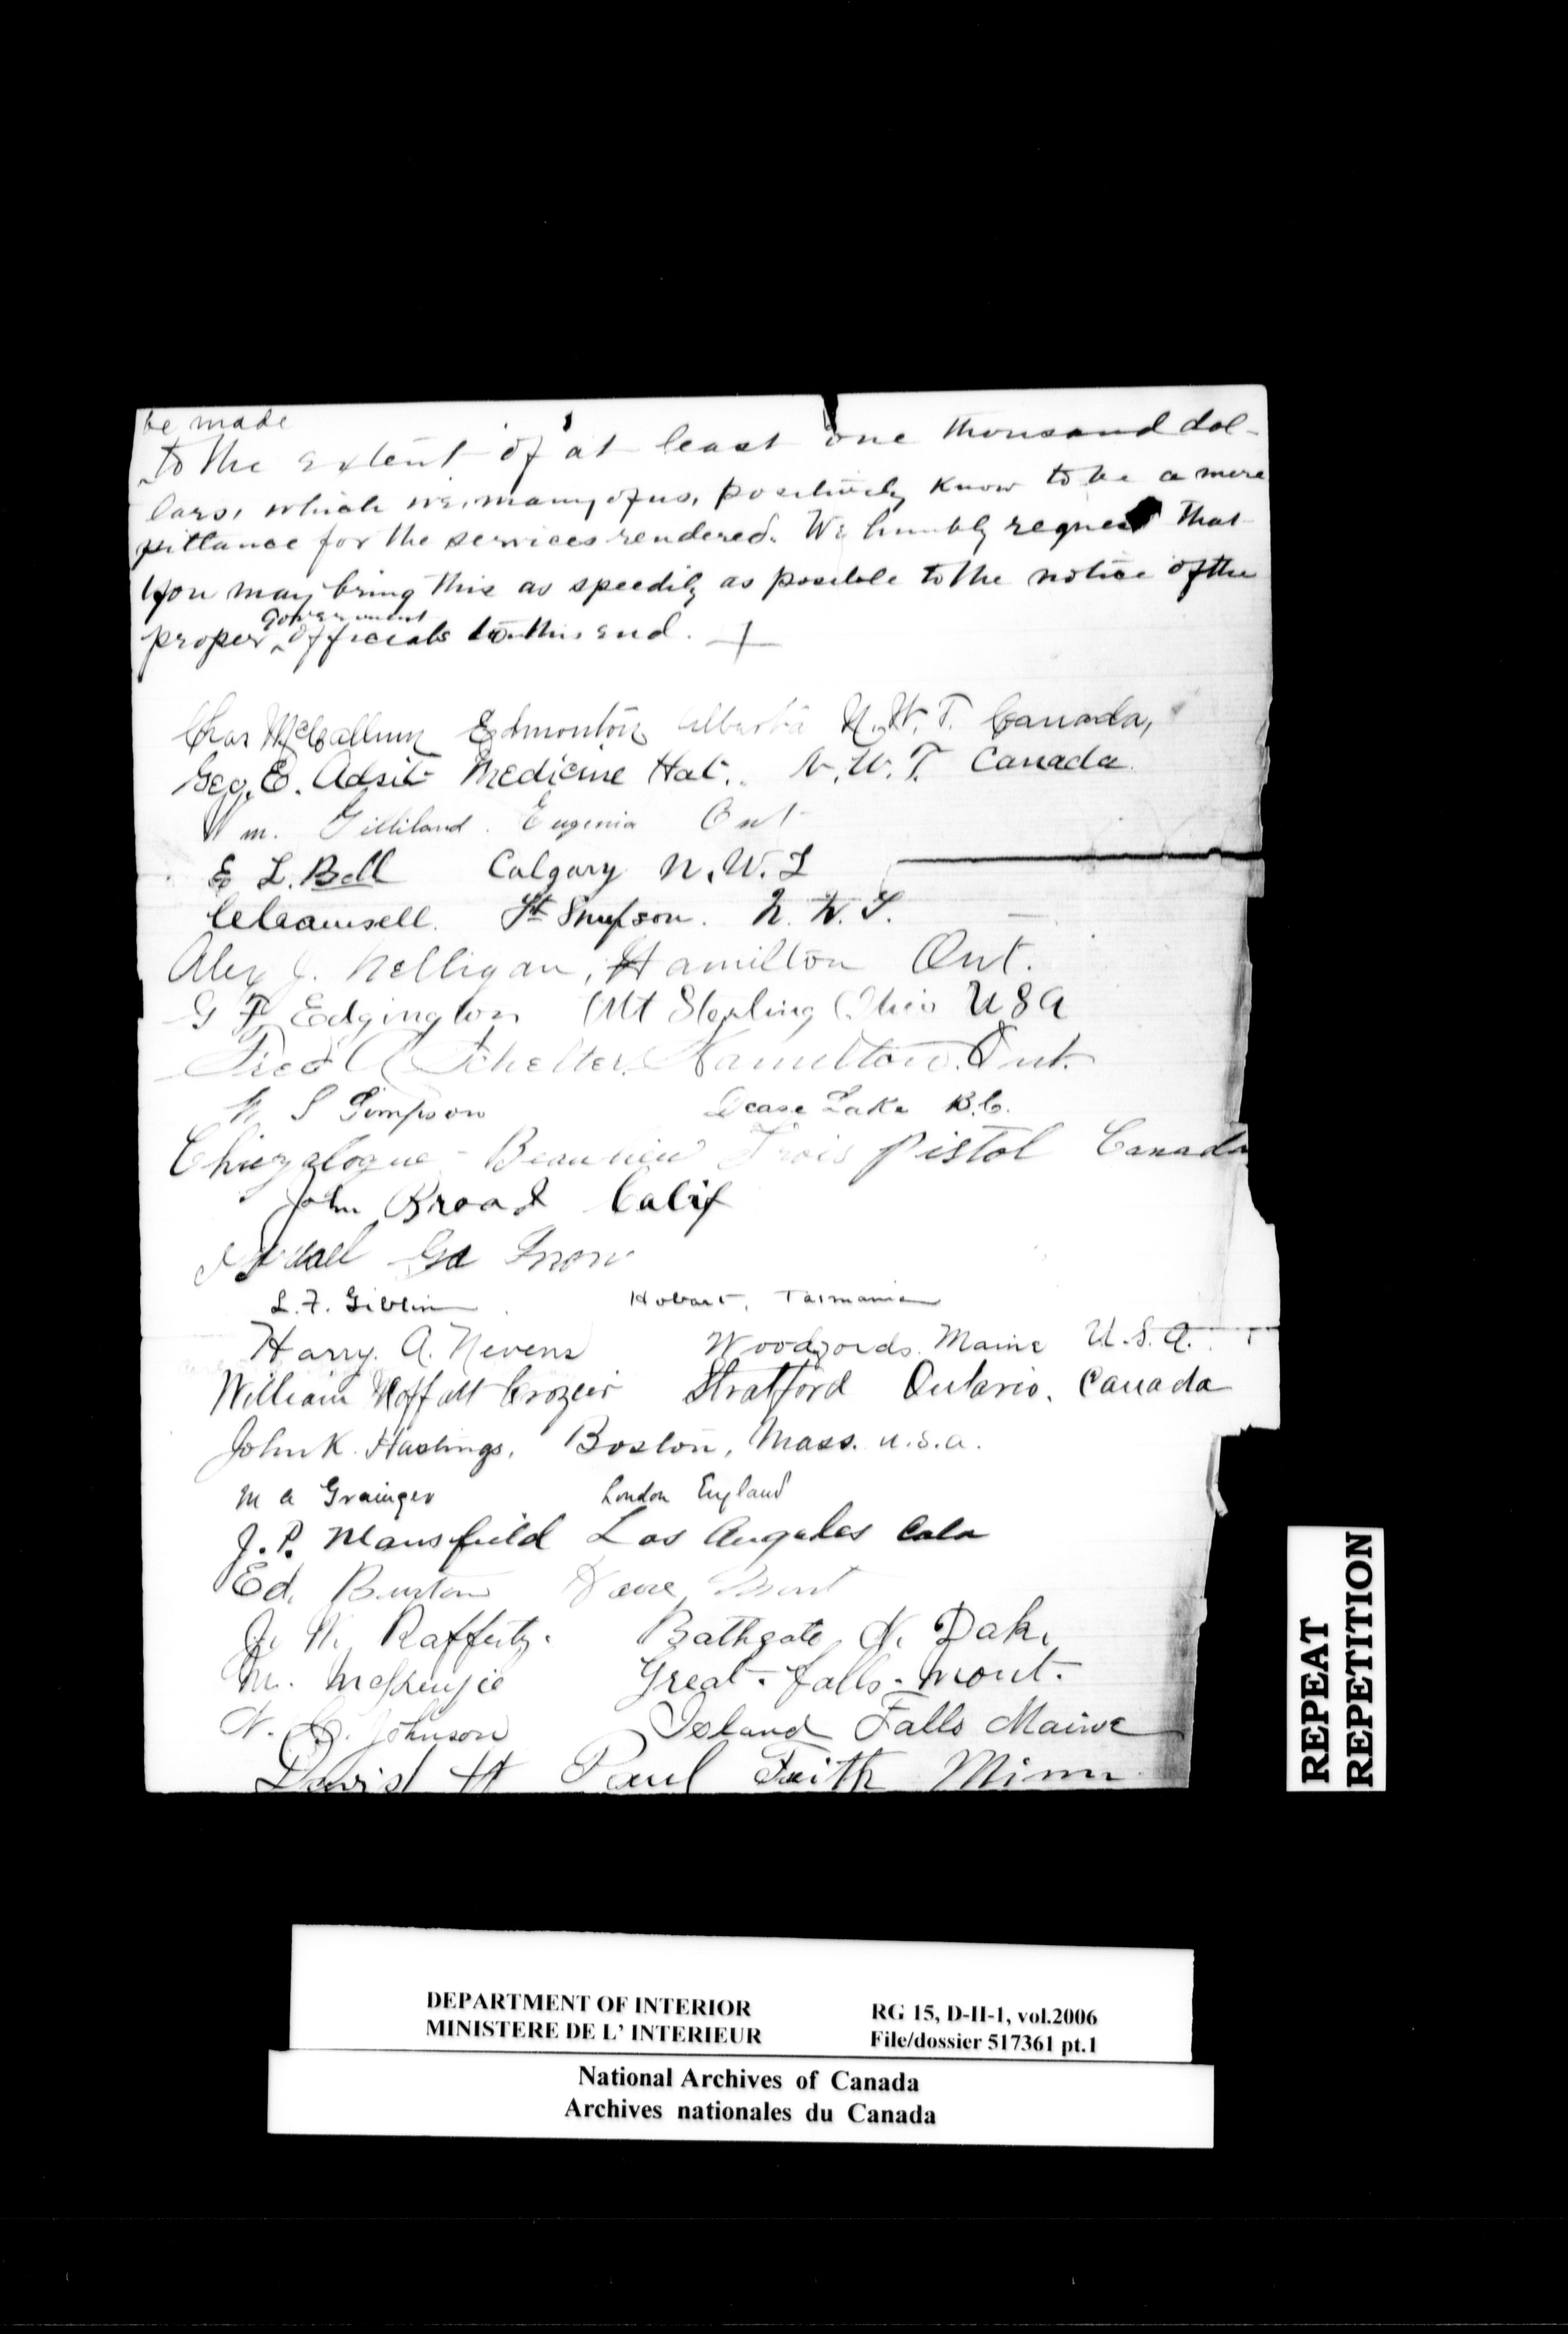 be made
to the extent of at least one thousand dol-
lars, which we, many of us, positively know to be a mere
pittance for the services rendered. We humbly request that
you may bring this as speedily as possible to the notice of the
government
proper officials to this end.
Chas McCallum Edmonton Alberta N.W.T. Canada,
Geo. E. Adsit Medicine Hat. N.W.T. Canada.
Wm. Gilliland. Eugenia Ont
E L. Bell Calgary N.W.T
Camsell. Ft Simpson. N.W.T.
Alex J. Nelligan, Hamilton Ont.
G F Edgington Mt Sterling Ohio USA
Fred Schelter. Hamilton. Ont.
S Simpson Dease Lake B.C.
Beaulieu Trois pistol Canada
John Broad Calif
Snow
L. F. Giblin Hobart, Tasmania
Harry. A. Nevens Woodfords. Maine U.S.A.
William Moffatt Crozier Stratford Ontario. Canada
John K. Hastings. Boston, Mass. U.S.A.
M A Grainger London England
J. P. Mansfield Los Angeles Cala
Ed. Burton
J. W. Rafferty. Bathgate, N. Dak.
M. McKenzie Great-falls-Mont.
N. Johnson Island Falls Maine
David H Paul Faith Minn
REPEAT
REPETITION
DEPARTMENT OF INTERIOR RG 15, D-II-1, vol.2006
MINISTERE DE L' INTERIEUR File/dossier 517361 pt.1
National Archives of Canada
Archives nationales du Canada